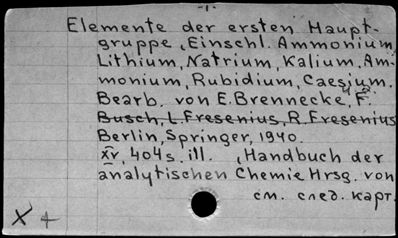 -1-
Elemente der ersten Haupt-
gruppe, Einschl. Ammonium,
Lithium, Natrium, Kalium, Am-
monium, Rubidium, Caesium.
Bearb. von E. Brennecke, F.
Busch, L. Fresenius, R. Fresenius
Berlin, Springer, 1940.
XV, 404 s. ill. (Handbuch der
analytischen Chemie Hrsg. von
см. след. карт.
X 4